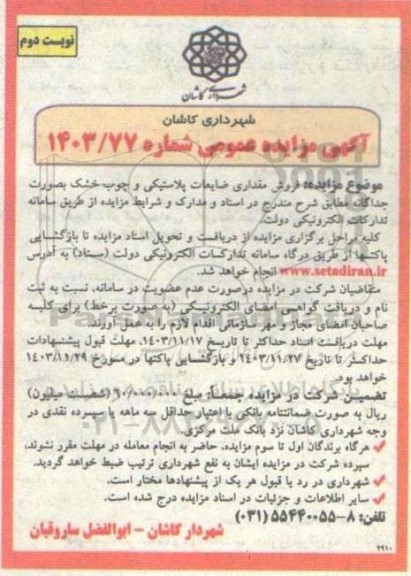 نوبت دوم
شهرداری کاشان
شهرداری کاشان
آگهی مزایده عمومی شماره ۱۴۰۳/۷۷
موضوع مزایده: فروش مقداری ضایعات پلاستیکی و چوب خشک بصورت
جداگانه مطابق شرح مندرج در اسناد و مدارک و شرایط مزایده از طریق سامانه
تدارکات الکترونیکی دولت.
کلیه مراحل برگزاری مزایده از دریافت و تحویل اسناد مزایده تا بازگشایی
پاکتها از طریق درگاه سامانه تدارکات الکترونیکی دولت (ستاد) به آدرس
www.setadiran.ir انجام خواهد شد.
متقاضیان شرکت در مزایده درصورت عدم عضویت در سامانه، نسبت به ثبت
نام و دریافت گواهی امضای الکترونیکی (به صورت برخط) برای کلیه
صاحبان امضای مجاز و مهر سازمانی اقدام لازم را به عمل آورند.
مهلت دریافت اسناد حداکثر تا تاریخ ۱۴۰۳/۱۱/۱۷، مهلت قبول پیشنهادات
حداکثر تا تاریخ ۱۴۰۳/۱۱/۲۷ و بازگشایی پاکتها در مورخ ۱۴۰۳/۱۱/۲۹
خواهد بود.
تضمین شرکت در مزایده جمعاً مبلغ ۶۰/۰۰۰/۰۰۰ (شصت میلیون)
ریال به صورت ضمانتنامه بانکی با اعتبار حداقل سه ماهه یا سپرده نقدی در
وجه شهرداری کاشان نزد بانک ملت مرکزی.
✓ هرگاه برندگان اول تا سوم مزایده، حاضر به انجام معامله در مهلت مقرر نشوند،
سپرده شرکت در مزایده ایشان به نفع شهرداری ترتیب ضبط خواهد گردید.
✓ شهرداری در رد یا قبول هر یک از پیشنهادها مختار است.
✓ سایر اطلاعات و جزئیات در اسناد مزایده درج شده است.
تلفن: ۸-۵۵۴۴۰۰۵۵ (۰۳۱)
شهردار کاشان - ابوالفضل ساروقیان
۲۹۱۰